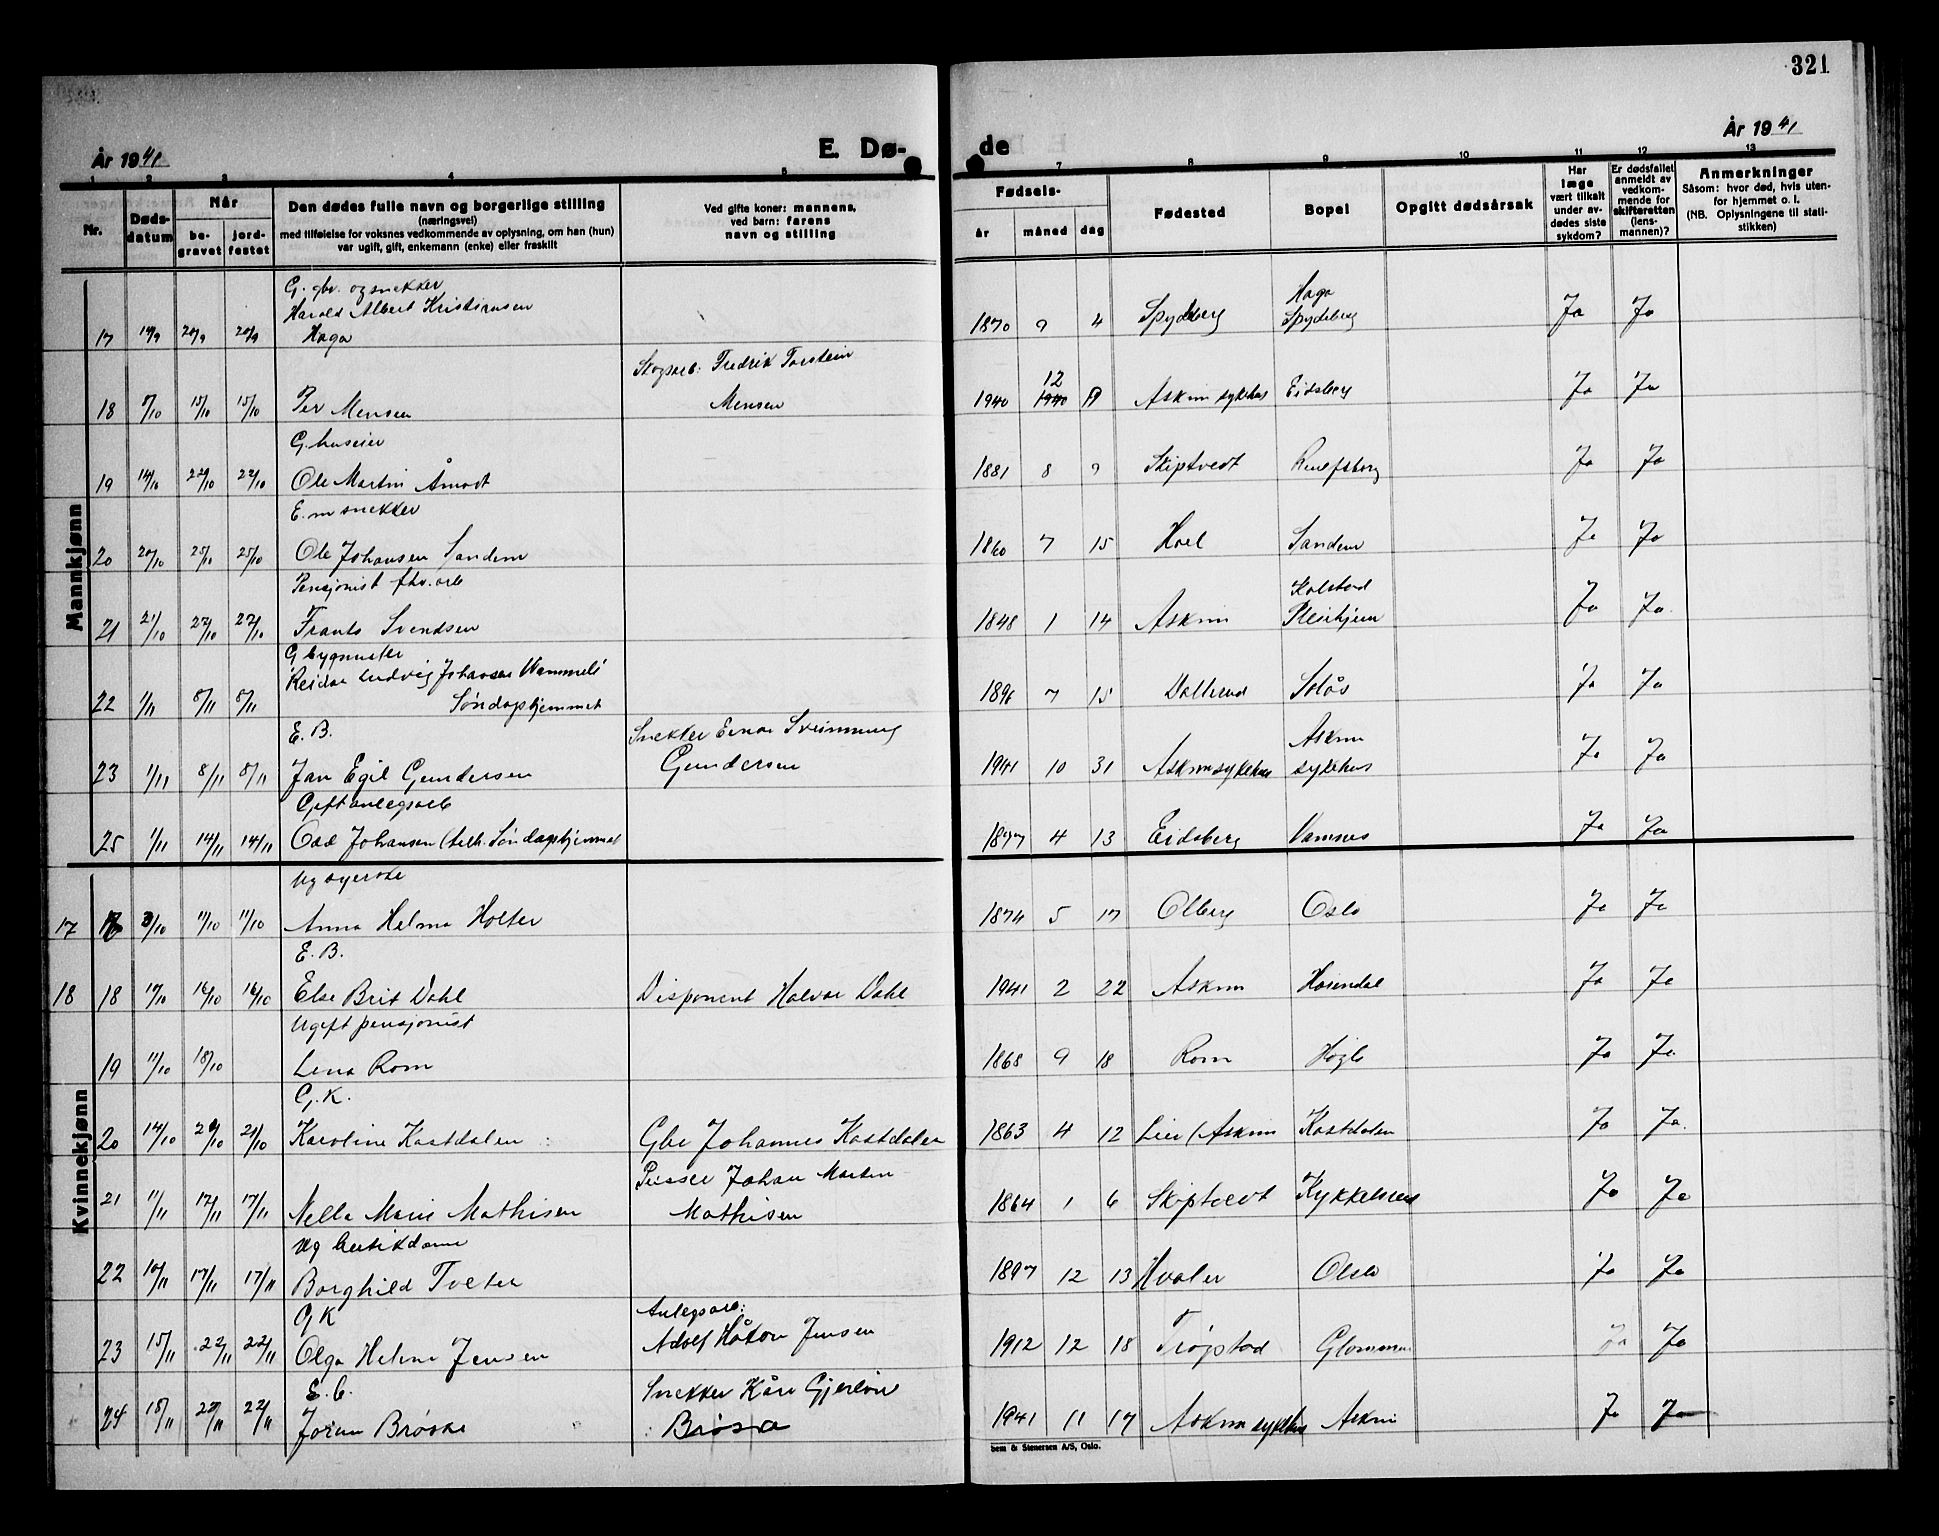 321
År 1941
E. Dø-
de
År 1941
1 2 3 4 5
7 8 9 10 11 12 13
Nr.
Døds-
datum
Når
be-
gravet
jord-
festet
Den dødes fulle navn og borgerlige stilling
(næringsvei)
med tilføielse for voksnes vedkommende av oplysning, om han (hun)
var ugift, gift, enkemann (enke) eller fraskilt
Ved gifte koner: mannens,
ved barn: farens
navn og stilling
Fødsels-
år måned dag
Fødested
Bopel
Opgitt dødsårsak
Har
læge
vært tilkalt
under av-
dødes siste
sykdom?
Er dødsfallet
anmeldt av
vedkom-
mende for
skifteretten
(lens-
mannen)?
Anmerkninger
Såsom: hvor død, hvis uten-
for hjemmet o. l.
(NB. Oplysningene til stati-
stikken)
Mannkjønn
G. gbr. og snekker
Harald Albert Kristiansen
17 14/9 20/9 20/9 Haga 1870 9 4 Spydeberg Haga Spydeberg Ja Ja
Skogsarb: Fredrik Torstein
18 15/10 15/10 Per Mensen Mensen 1940 12 Askim sykehus Eidsberg Ja Ja
G. huseier
19 14/10 22/10 22/10 Ole Martin Åmodt 1881 8 9 Skiptvedt Ja Ja
E.m snekker
20 20/10 25/10 25/10 Ole Johansen Sandem 1860 7 15 Hoel Sandem Ja Ja
Pensjonist fhv. arb
21 21/10 27/10 27/10 Frants Svendsen 1848 1 14 Askim Kolstad Pleiehjem Ja Ja
G bygmester
Reidar Ludvig Johansen
22 1/11 8/11 8/11 Søndagshjemmet 1896 7 15 Solås Ja Ja
E. B. Snekker Einar Svinnung
23 1/11 8/11 8/11 Jan Egil Gundersen Gundersen 1941 10 31 Askim sykehus Askim sykehus Ja Ja
Gift anlegsarb
25 1/11 14/11 14/11 Odd Johansen Søndagshjemmet 1877 4 13 Eidsberg Vamnes Ja Ja
Kvinnekjønn
Ug syerske
17 3/10 11/10 11/10 Anna Helma Holter 1874 5 17 Olberg Oslo Ja Ja
E. B.
18 18 16/10 16/10 Else Brit Dahl Disponent Halvor Dahl 1941 2 22 Askim Hosendal Ja Ja
Ugift pensjonist
19 11/10 18/10 Lena Rom 1868 9 18 Rom Ja Ja
G. K.
20 14/10 21/10 Karoline Kastdalen Gbr Johannes Kastdalen 1863 4 12 Lier (Askim Kastdalen Ja Ja
Johan Morten
21 11/11 17/11 17/11 Nella Marie Mathisen Mathisen 1864 1 6 Skiptvedt Kykkelsrud Ja Ja
Ug butikdame
22 10/11 17/11 17/11 Borghild Tveter 1897 12 13 Hvaler Oslo Ja Ja
G K Anlegsarb:
23 15/11 22/11 22/11 Olga Helene Jensen Adolf Håkon Jensen 1912 12 18 Trøgstad Glommen Ja Ja
Snekker Kåre
24 18/11 22/11 22/11 Jorun Brøske 1941 11 17 Askim sykehus Askim Ja Ja
bem & Stenersen A/S, Oslo.